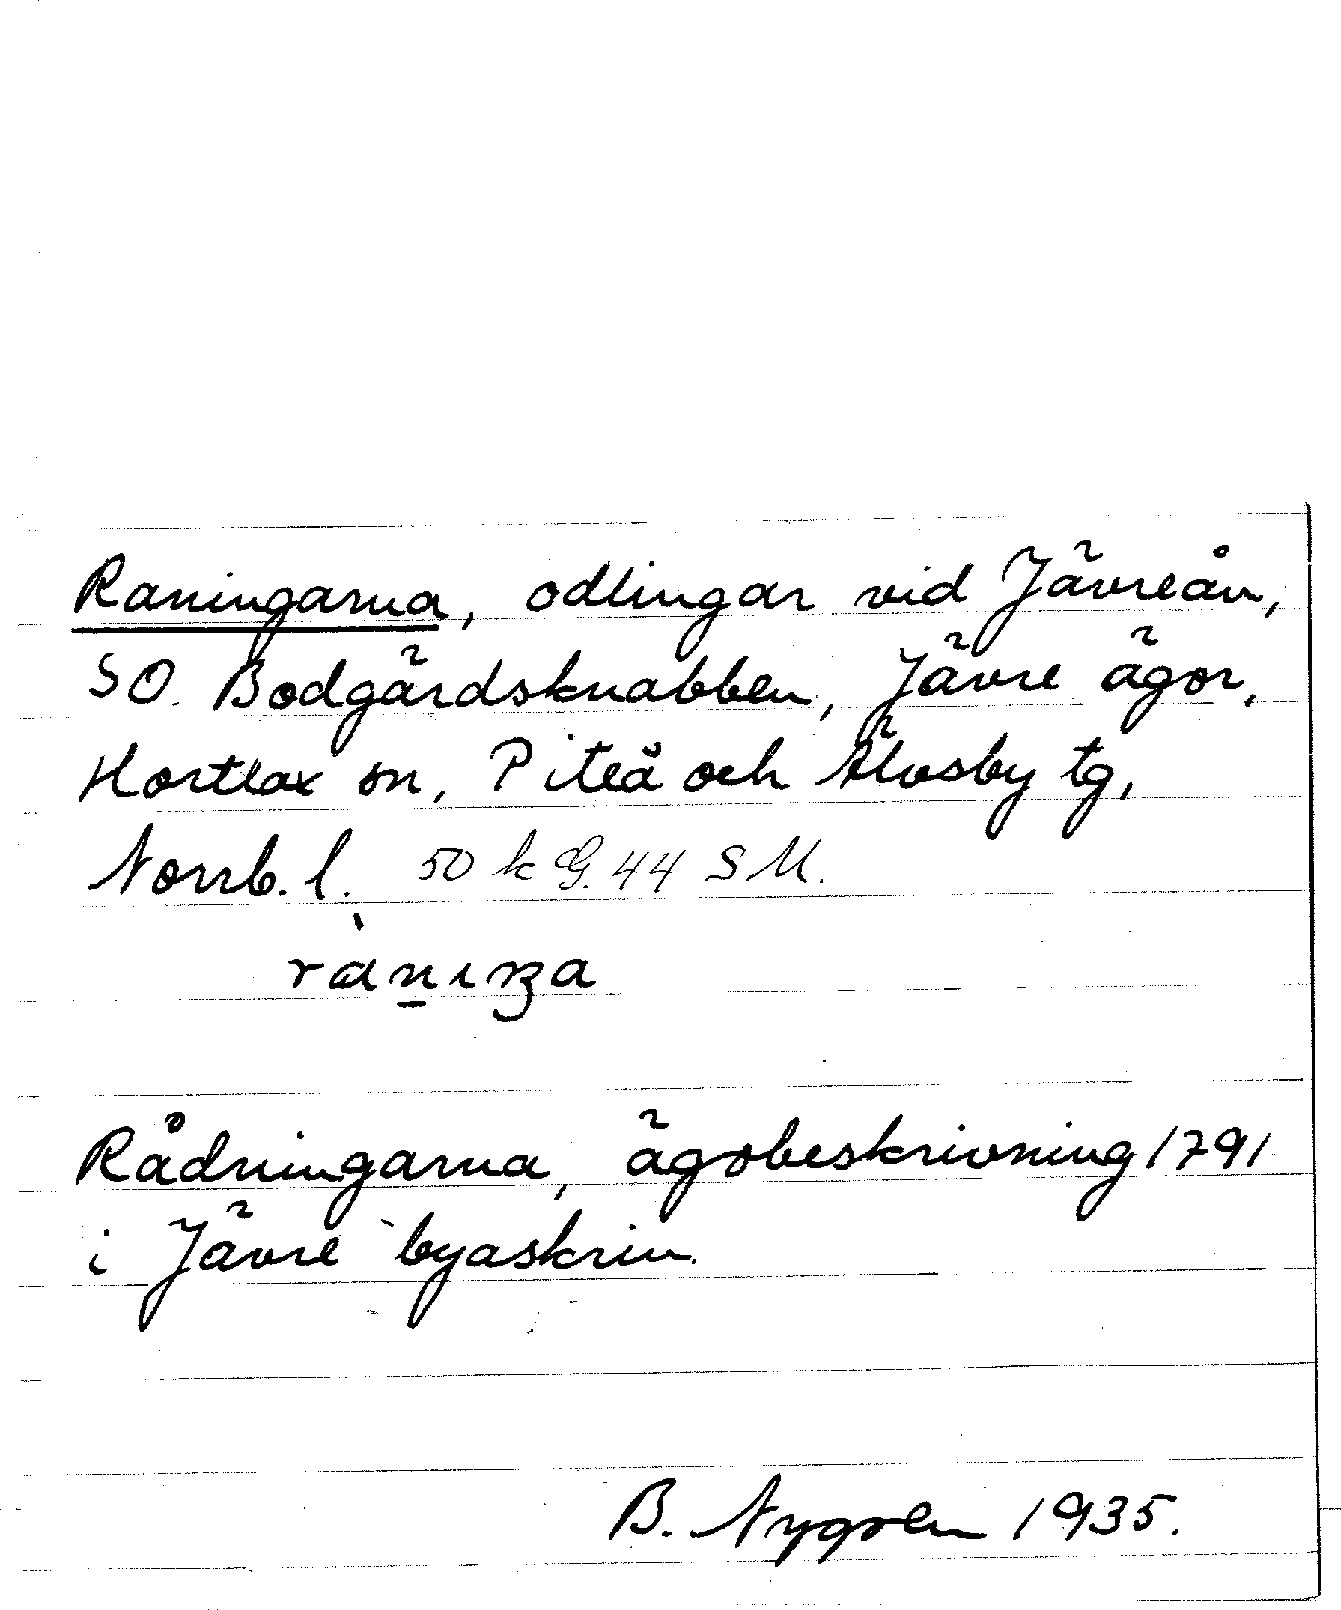 Raningarna, odlingar vid Jävreån,
SO. Bodgärdsknabben, Jävre ägor,
Hortlax sn, Piteå och Älvsby tg,
Norrb. l. 50 k G. 44 SM.
Rådningarna, ägobeskrivning 1791
i Jävre byaskrin.
B. Nygren 1935.